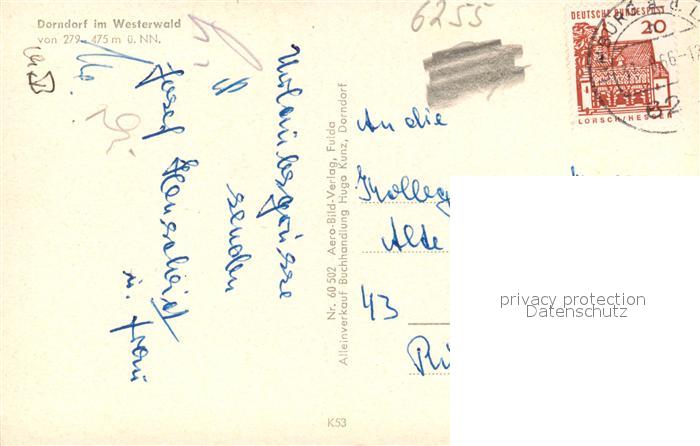 Dorndorf im Westerwald
von 279–475 m ü. NN.
6255
DEUTSCHE BUNDESPOST
20
LORSCH/HESSEN
82
Urlaubsgrüsse
senden
Josef
u. Frau
Nr. 60 502 Aero-Bild-Verlag, Fulda
Alleinverkauf Buchhandlung Hugo Kunz, Dorndorf
An die
Kolleg
Alte
43
privacy protection
Datenschutz
K53